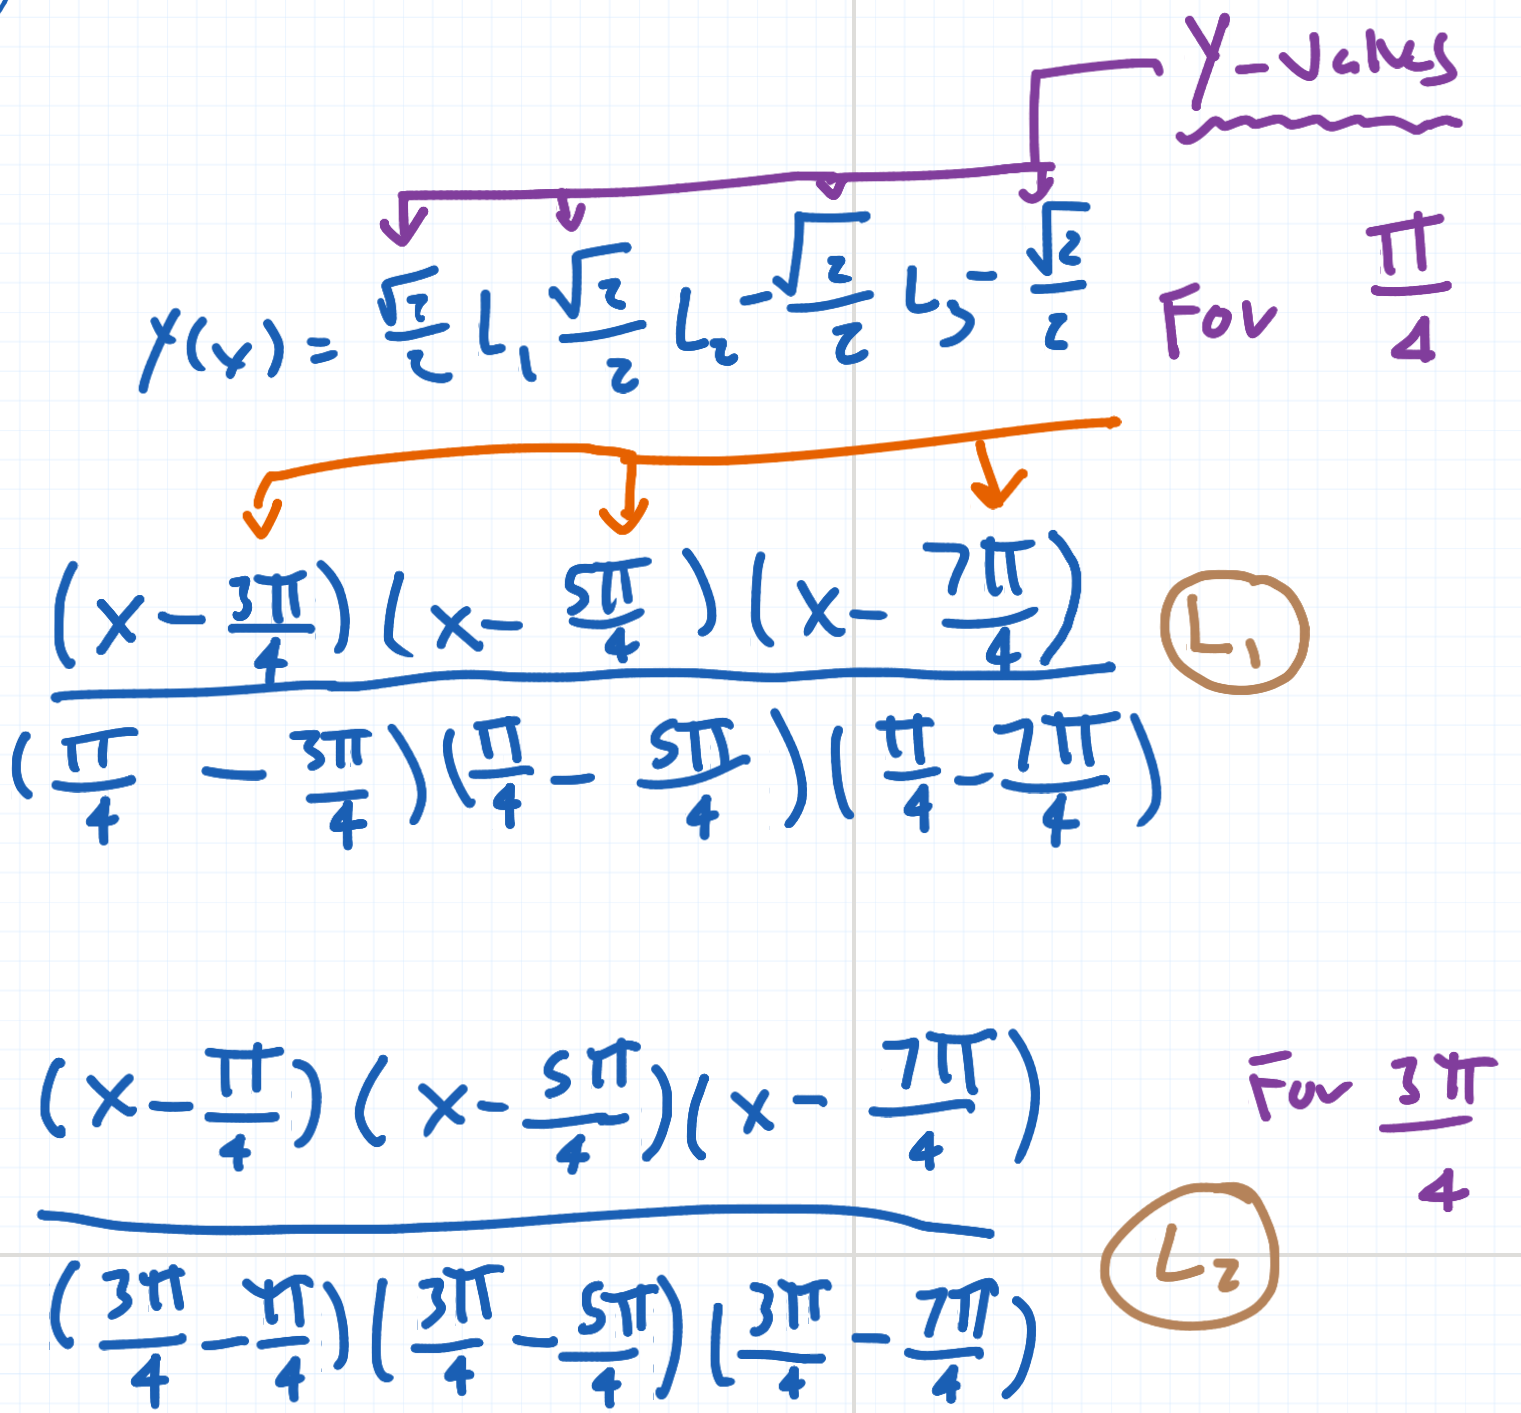 Y-values
Y(x) = √2/2 L₁ √2/2 L₂ - √2/2 L₃ - √2/2
For π/4
(x - 3π/4)(x - 5π/4)(x - 7π/4)
L₁
(π/4 - 3π/4)(π/4 - 5π/4)(π/4 - 7π/4)
(x - π/4)(x - 5π/4)(x - 7π/4)
For 3π/4
L₂
(3π/4 - π/4)(3π/4 - 5π/4)(3π/4 - 7π/4)